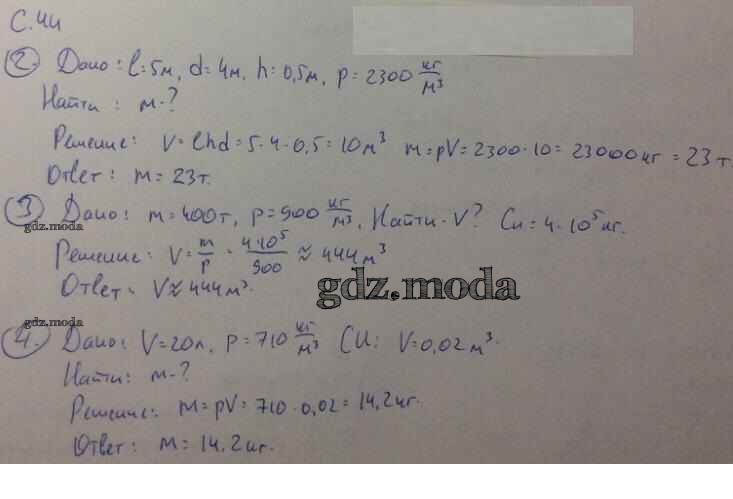 С.44
2. Дано: l=5м, d=4м, h=0,5м, ρ=2300 кг/м³
Найти: м-?
Решение: V=lhd=5·4·0,5=10м³ m=ρV=2300·10=23000кг=23т
Ответ: m=23т.
3 Дано: m=400т, ρ=900 кг/м³, Найти-V? Си=4·10⁵кг.
gdz.moda
Решение: V=m/ρ=4·10⁵/900≈444м³
Ответ: V≈444м³.
gdz.moda
gdz.moda
4. Дано: V=20л, ρ=710 кг/м³ СИ: V=0,02м³.
Найти: м-?
Решение: m=ρV=710·0,02=14,2кг.
Ответ: m=14,2кг.